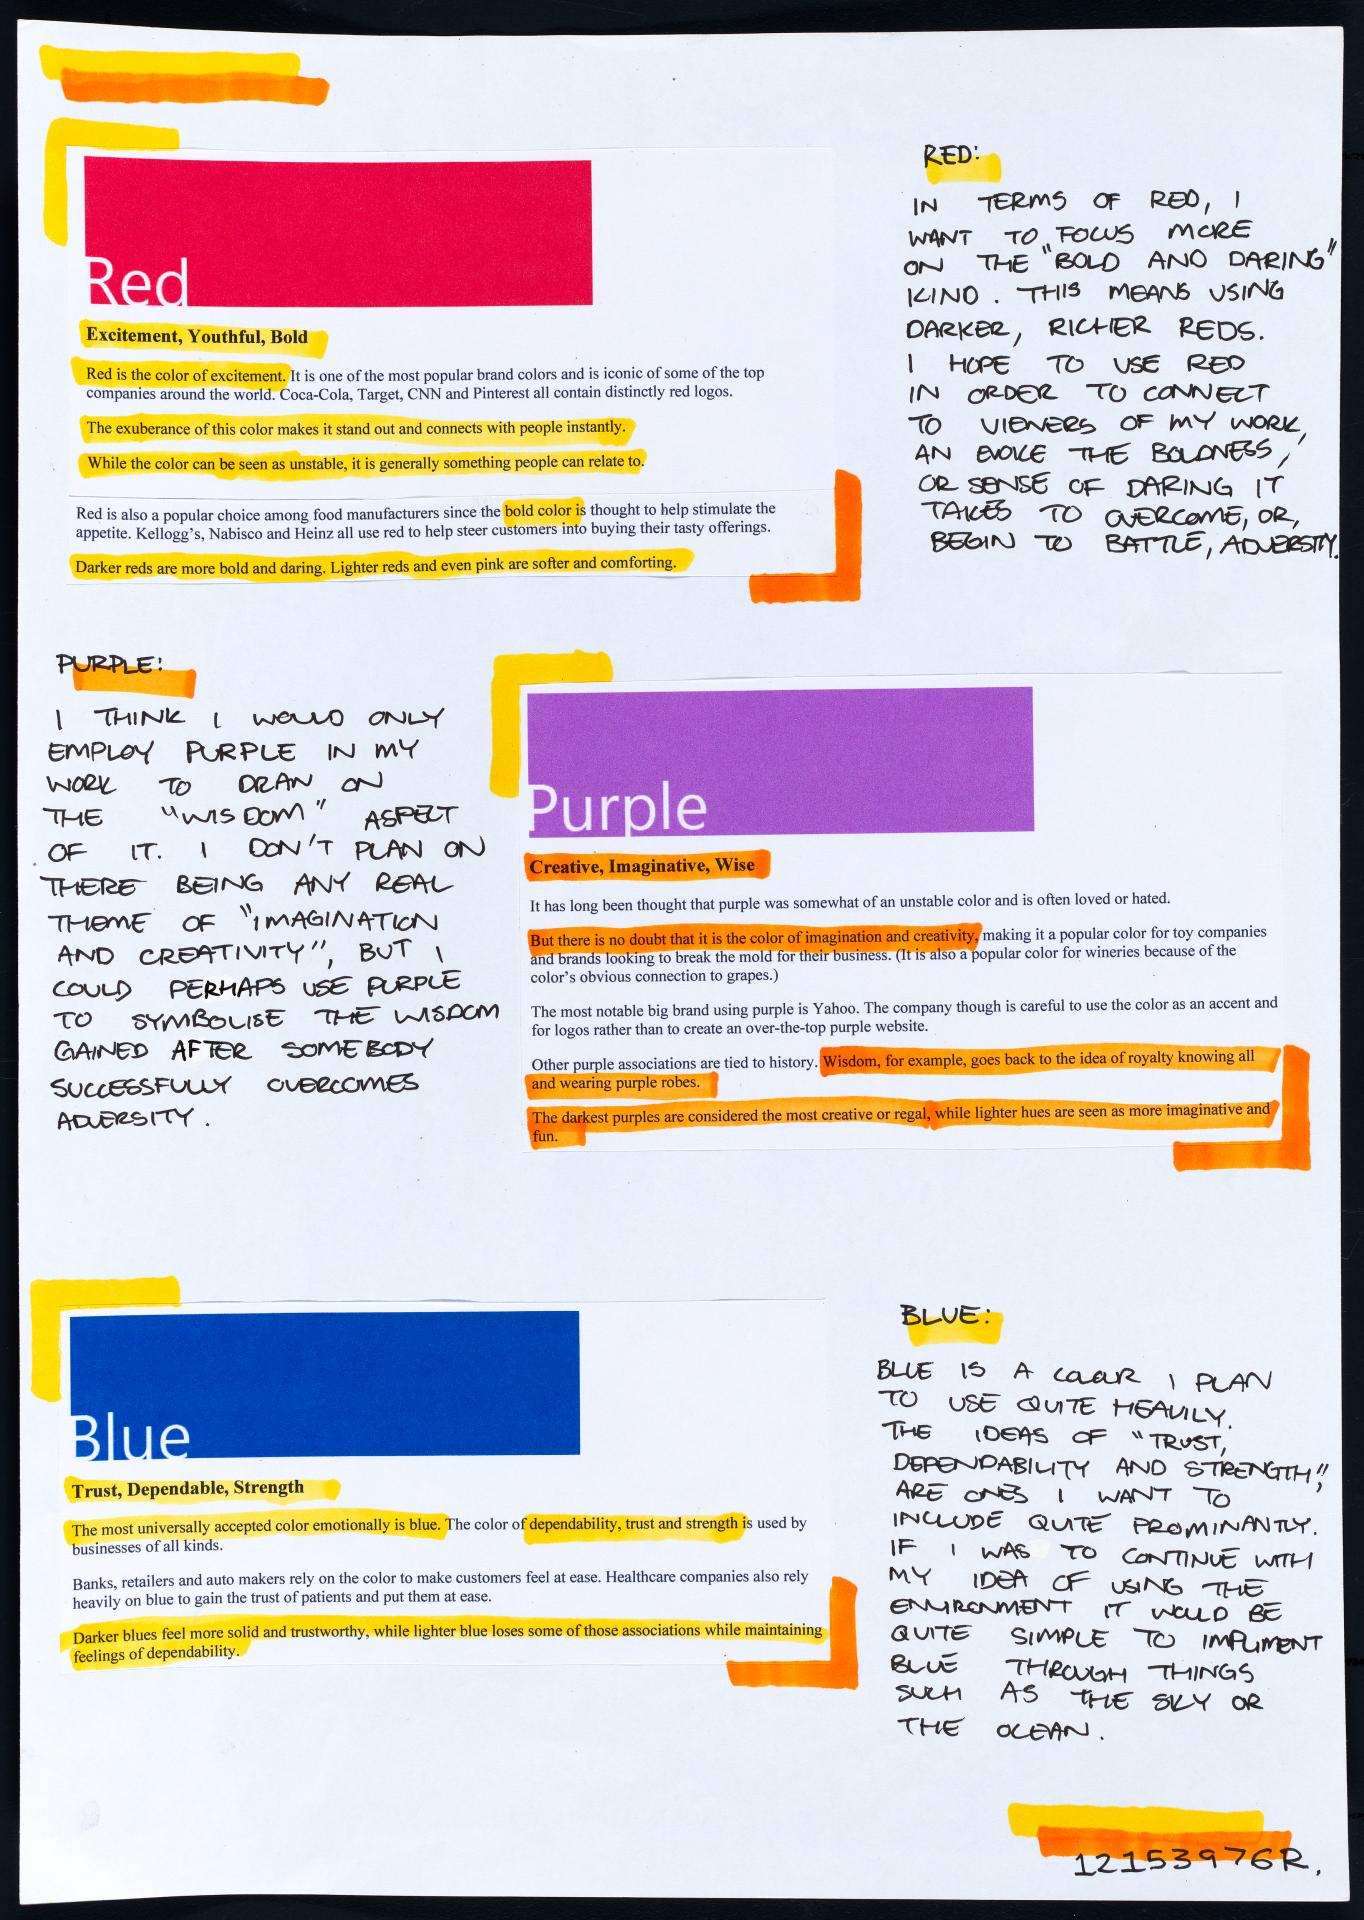 Red
Excitement, Youthful, Bold
Red is the color of excitement. It is one of the most popular brand colors and is iconic of some of the top
companies around the world. Coca-Cola, Target, CNN and Pinterest all contain distinctly red logos.
The exuberance of this color makes it stand out and connects with people instantly.
While the color can be seen as unstable, it is generally something people can relate to.
Red is also a popular choice among food manufacturers since the bold color is thought to help stimulate the
appetite. Kellogg's, Nabisco and Heinz all use red to help steer customers into buying their tasty offerings.
Darker reds are more bold and daring. Lighter reds and even pink are softer and comforting.
RED:
IN TERMS OF RED, I
WANT TO FOCUS MORE
ON THE "BOLD AND DARING"
KIND. THIS MEANS USING
DARKER, RICHER REDS.
I HOPE TO USE RED
IN ORDER TO CONNECT
TO VIEWERS OF MY WORK,
AN EVOKE THE BOLDNESS,
OR SENSE OF DARING IT
TAKES TO OVERCOME, OR,
BEGIN TO BATTLE, ADVERSITY.
PURPLE:
I THINK I WOULD ONLY
EMPLOY PURPLE IN MY
WORK TO DRAW ON
THE "WISDOM" ASPECT
OF IT. I DON'T PLAN ON
THERE BEING ANY REAL
THEME OF "IMAGINATION
AND CREATIVITY", BUT I
COULD PERHAPS USE PURPLE
TO SYMBOLISE THE WISDOM
GAINED AFTER SOMEBODY
SUCCESSFULLY OVERCOMES
ADVERSITY.
Purple
Creative, Imaginative, Wise
It has long been thought that purple was somewhat of an unstable color and is often loved or hated.
But there is no doubt that it is the color of imagination and creativity, making it a popular color for toy companies
and brands looking to break the mold for their business. (It is also a popular color for wineries because of the
color's obvious connection to grapes.)
The most notable big brand using purple is Yahoo. The company though is careful to use the color as an accent and
for logos rather than to create an over-the-top purple website.
Other purple associations are tied to history. Wisdom, for example, goes back to the idea of royalty knowing all
and wearing purple robes.
The darkest purples are considered the most creative or regal, while lighter hues are seen as more imaginative and
fun.
Blue
Trust, Dependable, Strength
The most universally accepted color emotionally is blue. The color of dependability, trust and strength is used by
businesses of all kinds.
Banks, retailers and auto makers rely on the color to make customers feel at ease. Healthcare companies also rely
heavily on blue to gain the trust of patients and put them at ease.
Darker blues feel more solid and trustworthy, while lighter blue loses some of those associations while maintaining
feelings of dependability.
BLUE:
BLUE IS A COLOUR I PLAN
TO USE QUITE HEAVILY.
THE IDEAS OF "TRUST,
DEPENDABILITY AND STRENGTH",
ARE ONES I WANT TO
INCLUDE QUITE PROMINANTLY.
IF I WAS TO CONTINUE WITH
MY IDEA OF USING THE
ENVIRONMENT IT WOULD BE
QUITE SIMPLE TO IMPLIMENT
BLUE THROUGH THINGS
SUCH AS THE SKY OR
THE OCEAN.
12153976R.